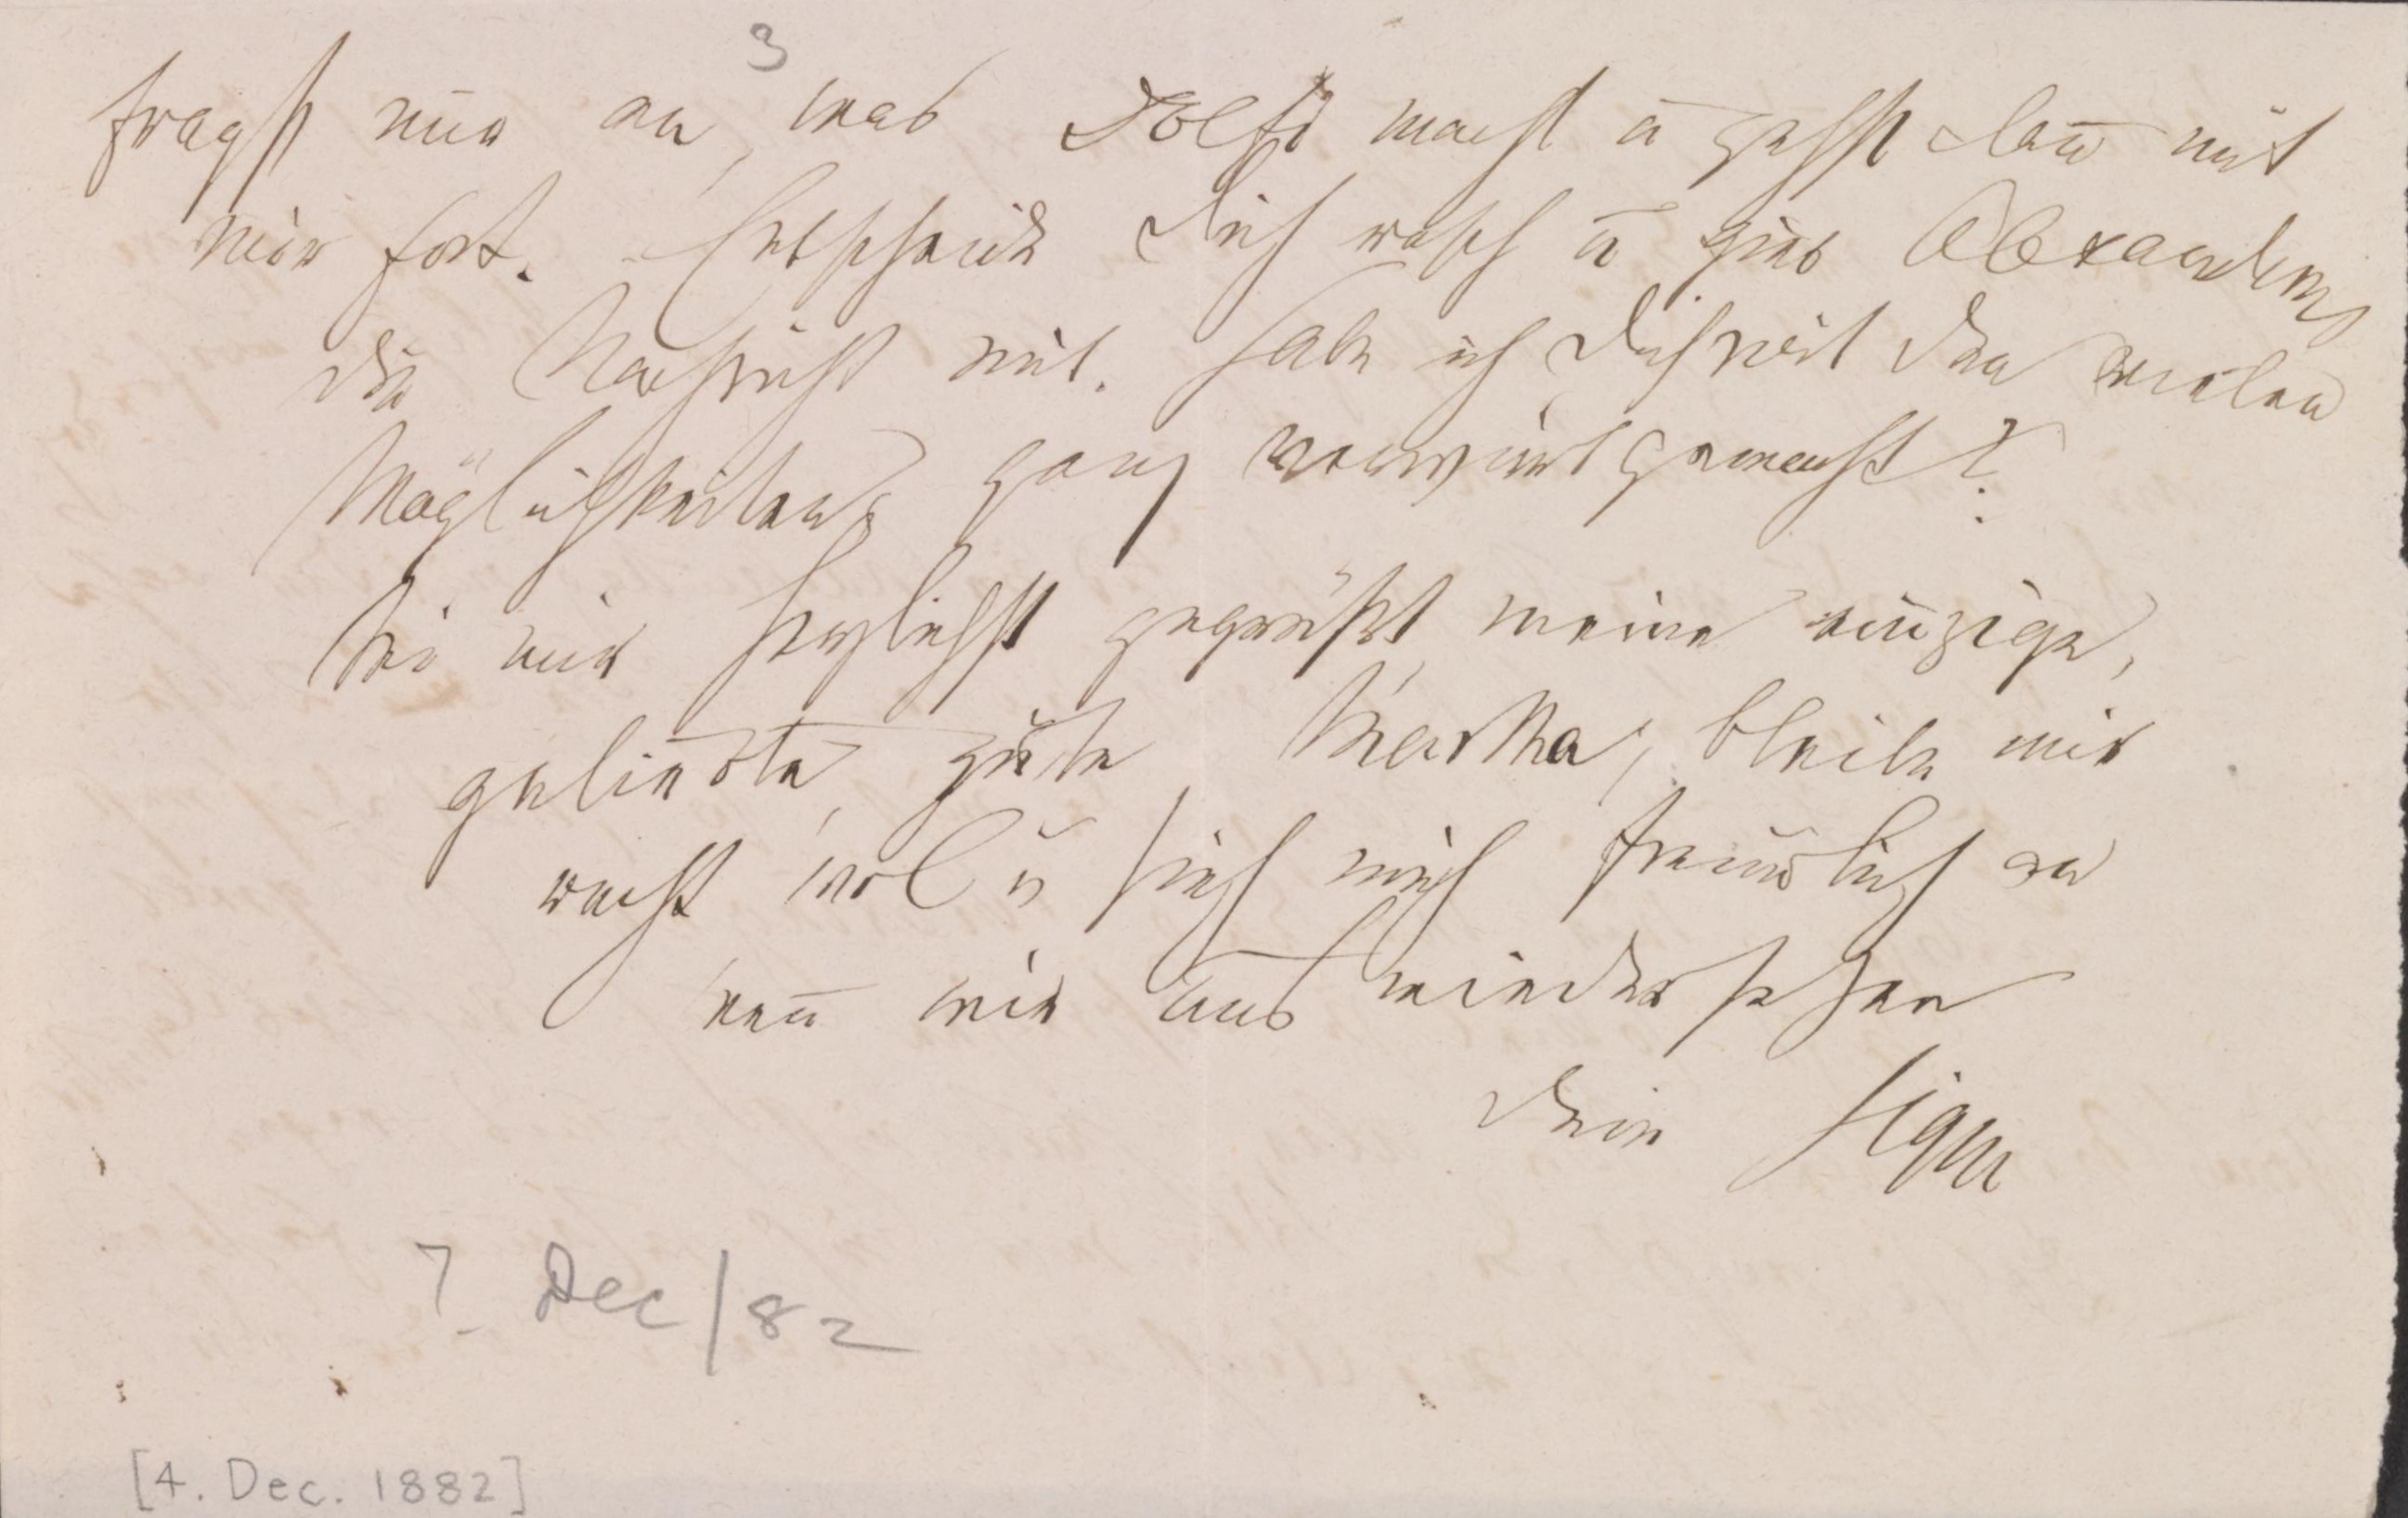 3
fragst nur an, was Dolfi macht u gehst dañ mit
mir fort. Entscheide Dich rasch u gib Alexander
die Nachricht mit. Habe ich Dich mit den vielen
Möglichkeiten ganz verwirrt gemacht?
Sei mir herzlichst gegrüßt, meine einzige,
geliebte, gute Martha, bleibe mir
recht wol u sieh mich freundlich an
weñ wir uns wiedersehen
Dein Sigm
7. Dec/82
[4. Dec. 1882]